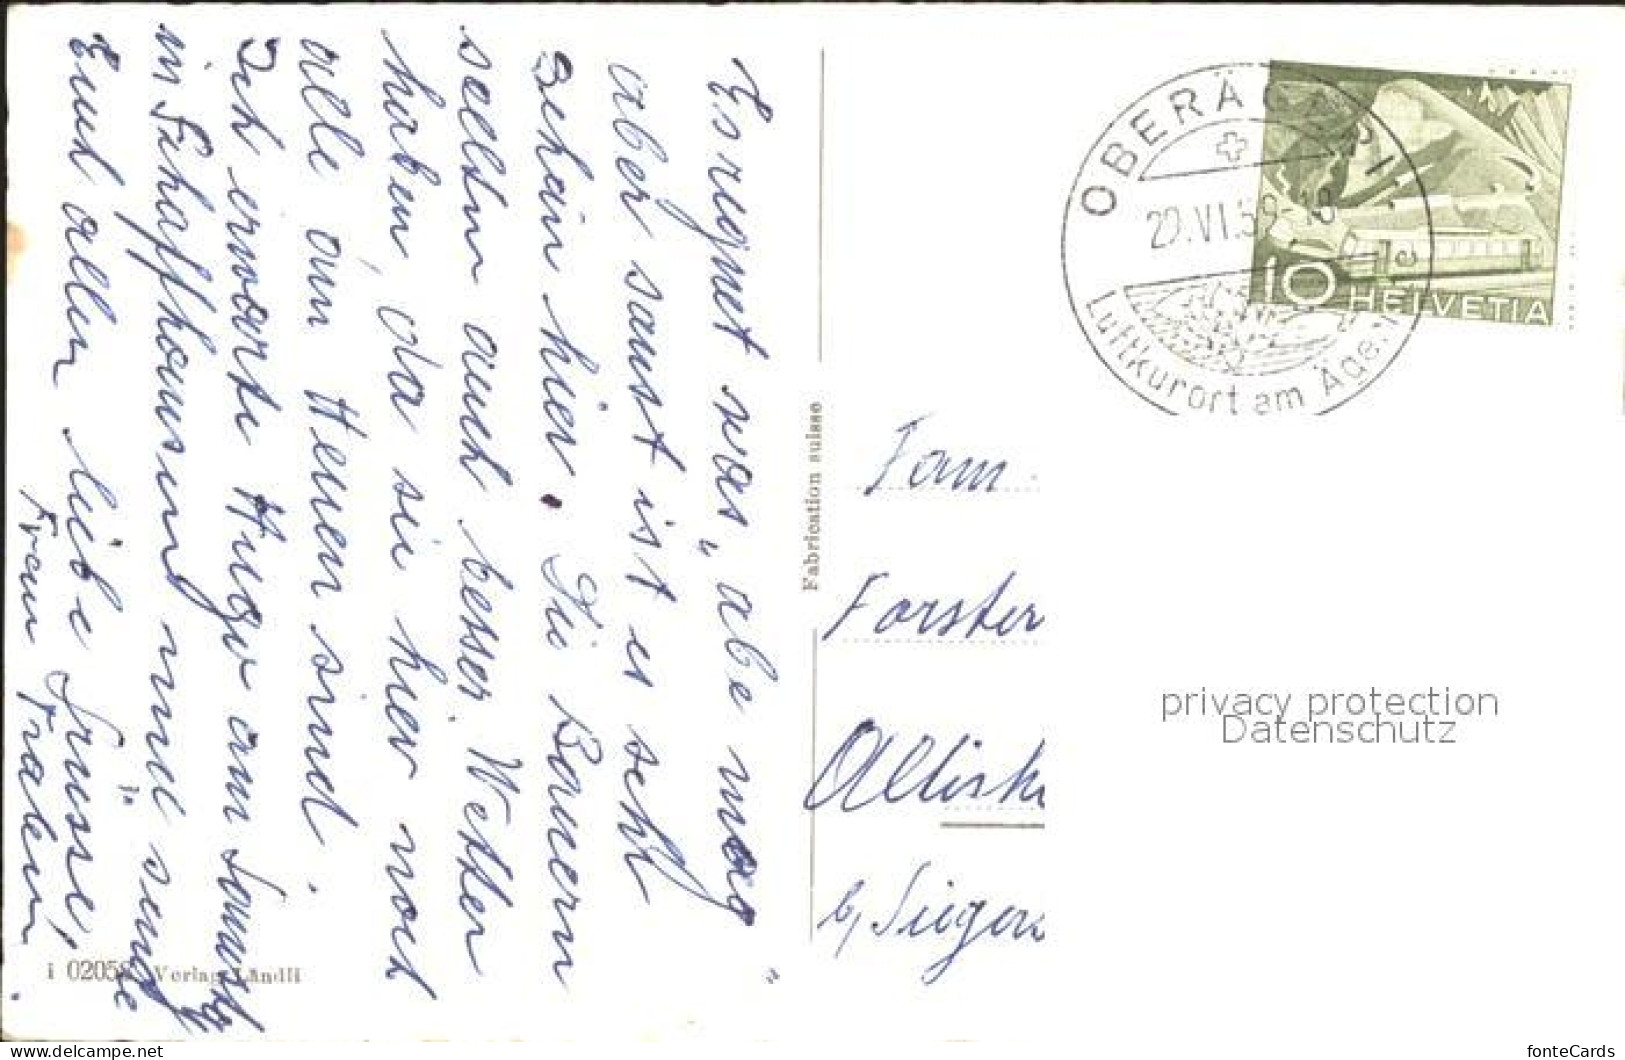 Es regnet was „abe mag"
aber saust ist es seht
schön hier. Die Bauern
sollten auch besser Wetter
haben, da sie hier noch
alle am Heuen sind.
Ich erwarte Hugo am Samstag
in Schaffhausung und sende
Euch allen liebe Grüsse,
Frau
i 0205 Verlag Ländli
Fabrication suisse
OBERÄGERI
VI.59-18
Luftkurort am Ägeri
10 HELVETIA
Fam.
Forster
b/ Siegers
privacy protection
Datenschutz
https://www.delcampe.net
fonteCards